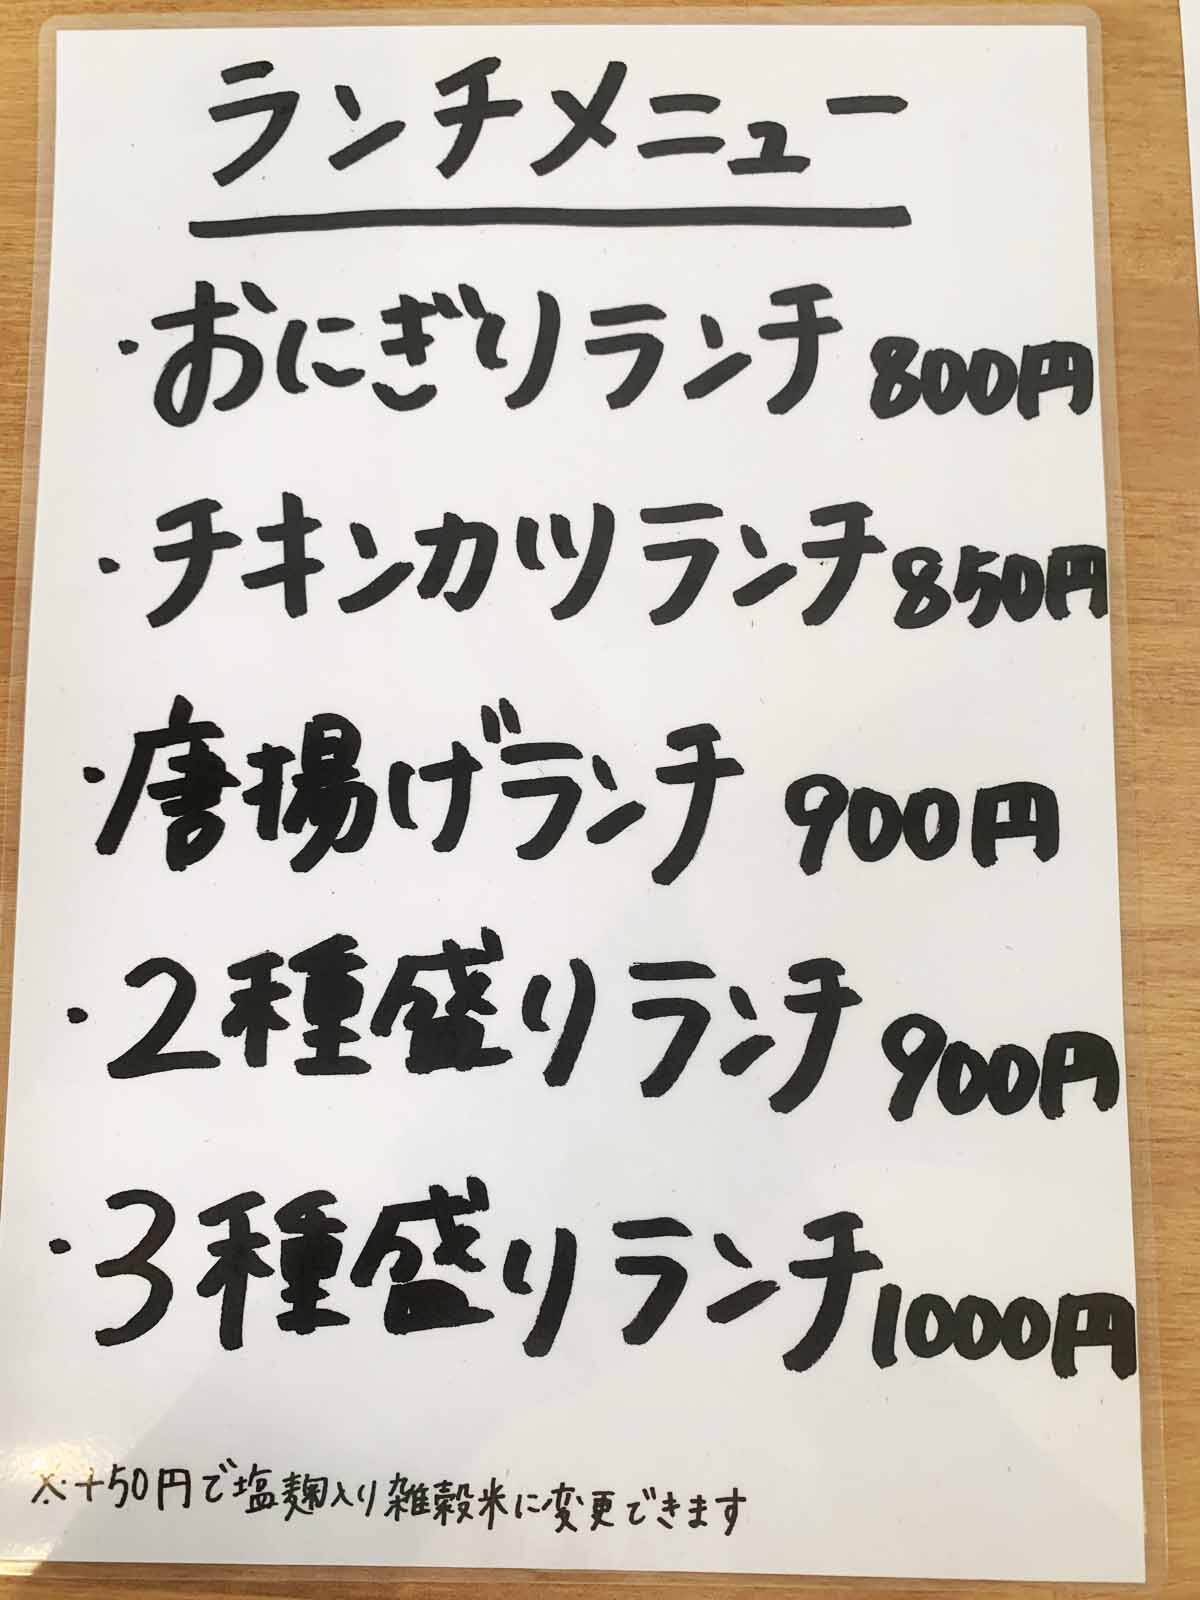 ランチメニュー
・おにぎりランチ 800円
・チキンカツランチ 850円
・唐揚げランチ 900円
・2種盛りランチ 900円
・3種盛りランチ 1000円
※+50円で塩麹入り雑穀米に変更できます